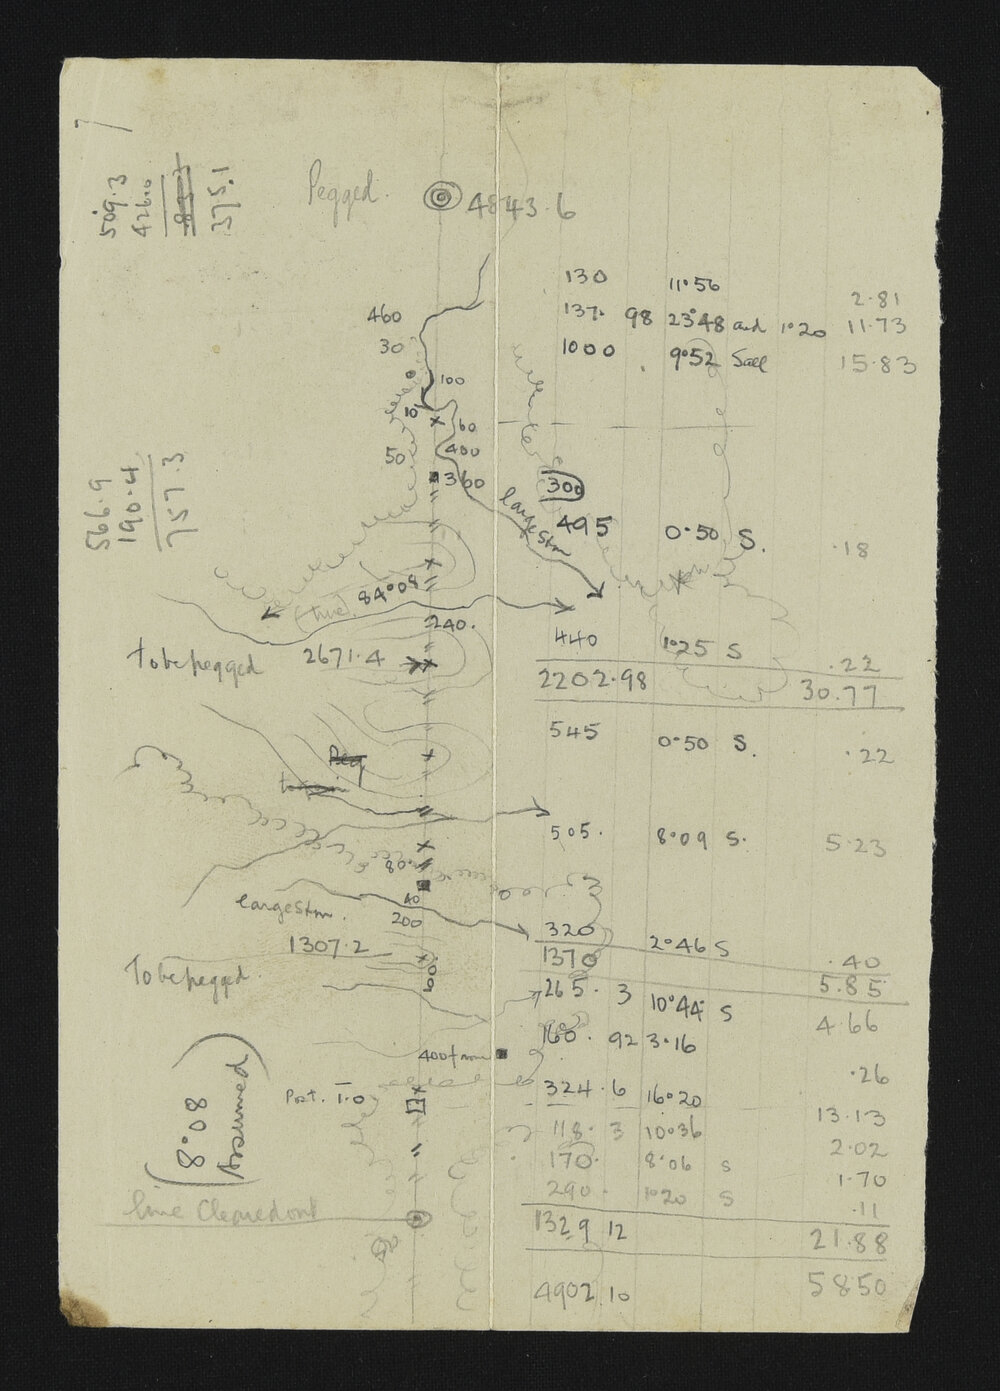 509.3
426.0
375.1
Pegged.
4843.6
130 11°56 2.81
137. 98 23°48 and 1°20 11.73
1000 9°52 Sall 15.83
460
30
0
100
10
60
50
400
360
566.9
190.4
757.3
300
large stm
495 0°50 S. .18
84°08
(true)
240.
440 1°25 S .22
to be pegged 2671.4
2202.98 30.77
545 0°50 S. .22
Peg
505. 8°09 S. 5.23
80.
40
200
large stm.
320 2°46 S .40
1307.2
1370 5.85
To be pegged.
600
265. 3 10°44 S 4.66
160. 92 3°16 .26
400 from
324.6 16°20 13.13
Post. 1.0
118. 3 10°36 2.02
170. 8°06 S 1.70
290. 1°20 S .11
(8°08
Assumed)
line Cleared out
1329 12 21.88
4902.10 58.50